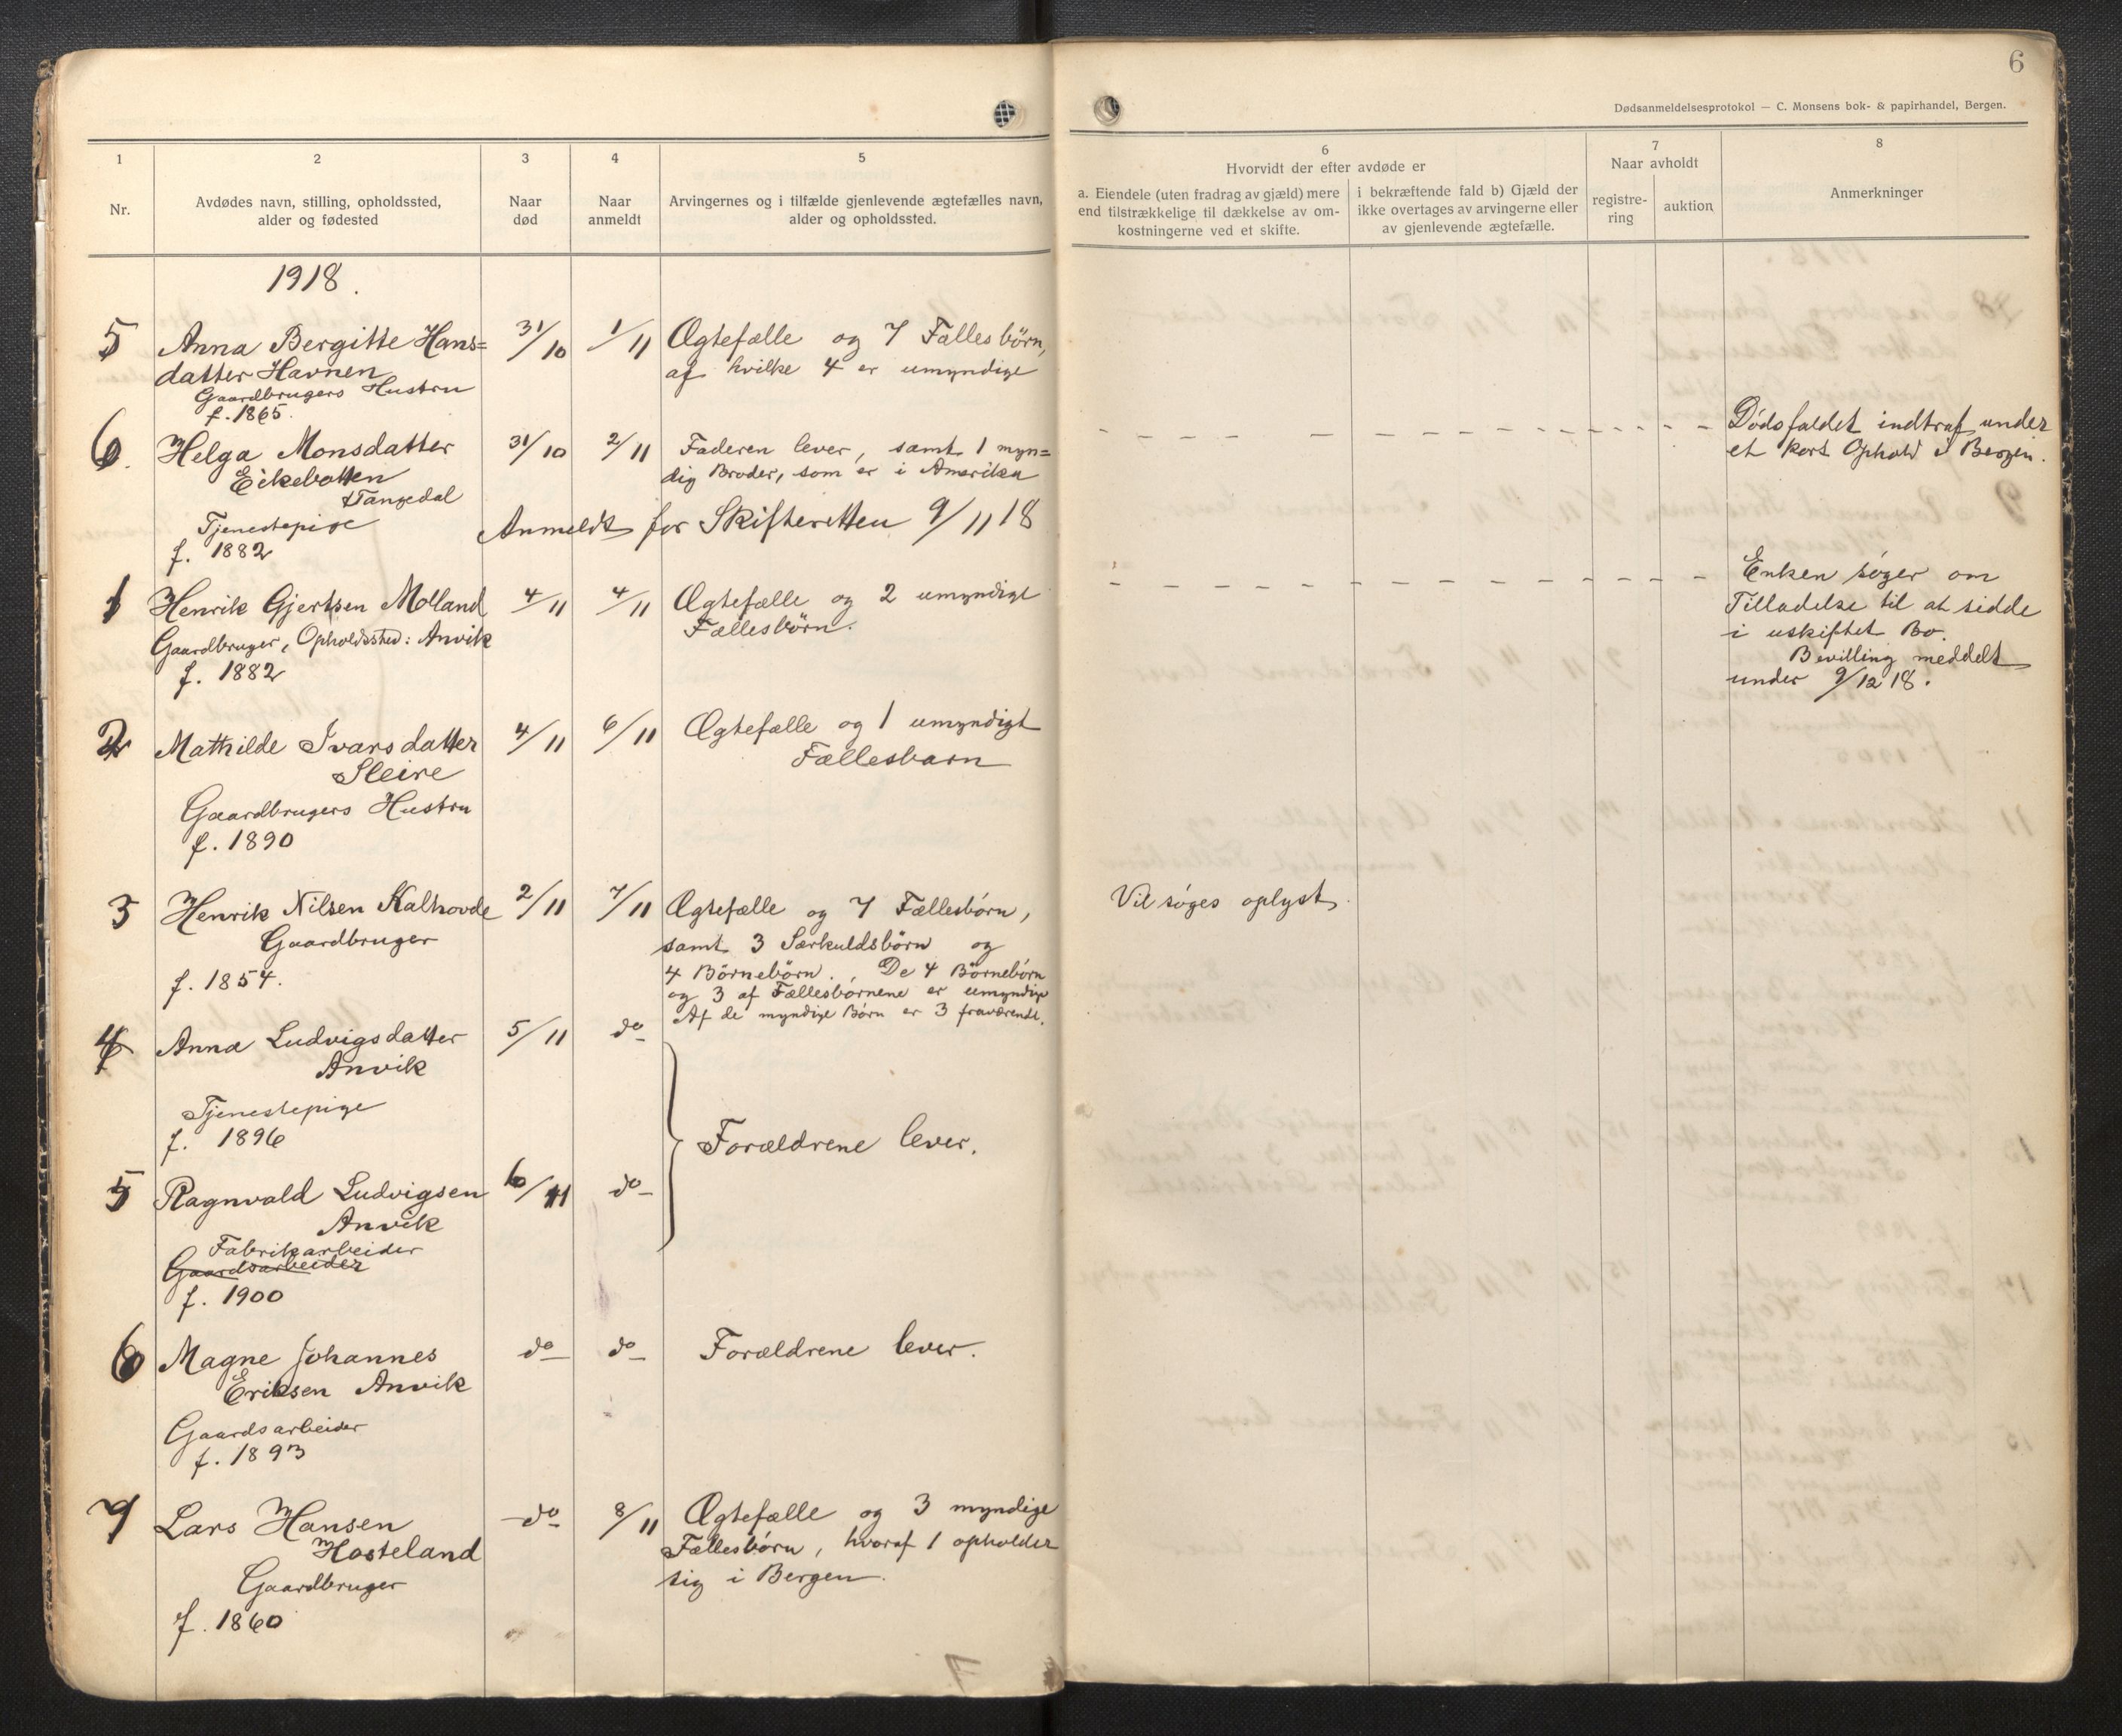 6
Dødsanmeldelsesprotokol — C. Monsens bok- & papirhandel, Bergen.
1
Nr.
2
Avdødes navn, stilling, opholdssted,
alder og fødested
3
Naar
død
4
Naar
anmeldt
5
Arvingernes og i tilfælde gjenlevende ægtefælles navn,
alder og opholdssted.
6
Hvorvidt der efter avdøde er
a. Eiendele (uten fradrag av gjæld) mere
end tilstrækkelige til dækkelse av om-
kostningerne ved et skifte.
i bekræftende fald b) Gjæld der
ikke overtages av arvingerne eller
av gjenlevende ægtefælle.
7
Naar avholdt
registre-
ring
auktion
8
Anmerkninger
1918.
5 Anna Bergitte Hans= 31/10 1/11 Ægtefælle og 7 Fællesbörn,
datter Havnen af hvilke 4 er umyndige
Gaardbrugers Hustru
f. 1865.
6. Helga Monsdatter 31/10 2/11 Faderen lever, samt 1 myn= Dødsfaldet indtraf under
Eikebotten dig Broder, som er i Amerika et kort Ophold i Bergen.
Tangedal
Tjenestepige Anmeldt for Skifteretten 9/11 18
f. 1882
1 Henrik Gjertsen Molland 4/11 4/11 Ægtefælle og 2 umyndige Enken søger om
Gaardbruger, Opholdssted: Anvik Fællesbörn. Tilladelse til at sidde
f. 1882 i uskiftet Bo.
Bevilling meddelt
under 9/12 18.
2 Mathilde Ivarsdatter 4/11 6/11 Ægtefælle og 1 umyndigt
Sleire Fællesbarn
Gaardbrugers Hustru
f. 1890
3 Henrik Nilsen Kalhovde 2/11 7/11 Ægtefælle og 7 Fællesbörn, Vil søges oplyst.
Gaardbruger samt 3 Særkuldsbörn og
f. 1854. 4 Börnebörn. De 4 Börnebörn
og 3 af Fællesbörnene er umyndige
Af de myndige Börn er 3 fraværende.
4 Anna Ludvigsdatter 5/11 do
Anvik
Tjenestepige
f. 1896 Forældrene lever.
5 Ragnvald Ludvigsen 6/11 do
Anvik
Fabrikarbeider
Gaardsarbeider
f. 1900
6 Magne Johannes do do Forældrene lever.
Eriksen Anvik
Gaardsarbeider
f. 1893
7 Lars Hansen do 8/11 Ægtefælle og 3 myndige
Hosteland Fællesbörn, hvoraf 1 opholder
Gaardbruger sig i Bergen.
f. 1860